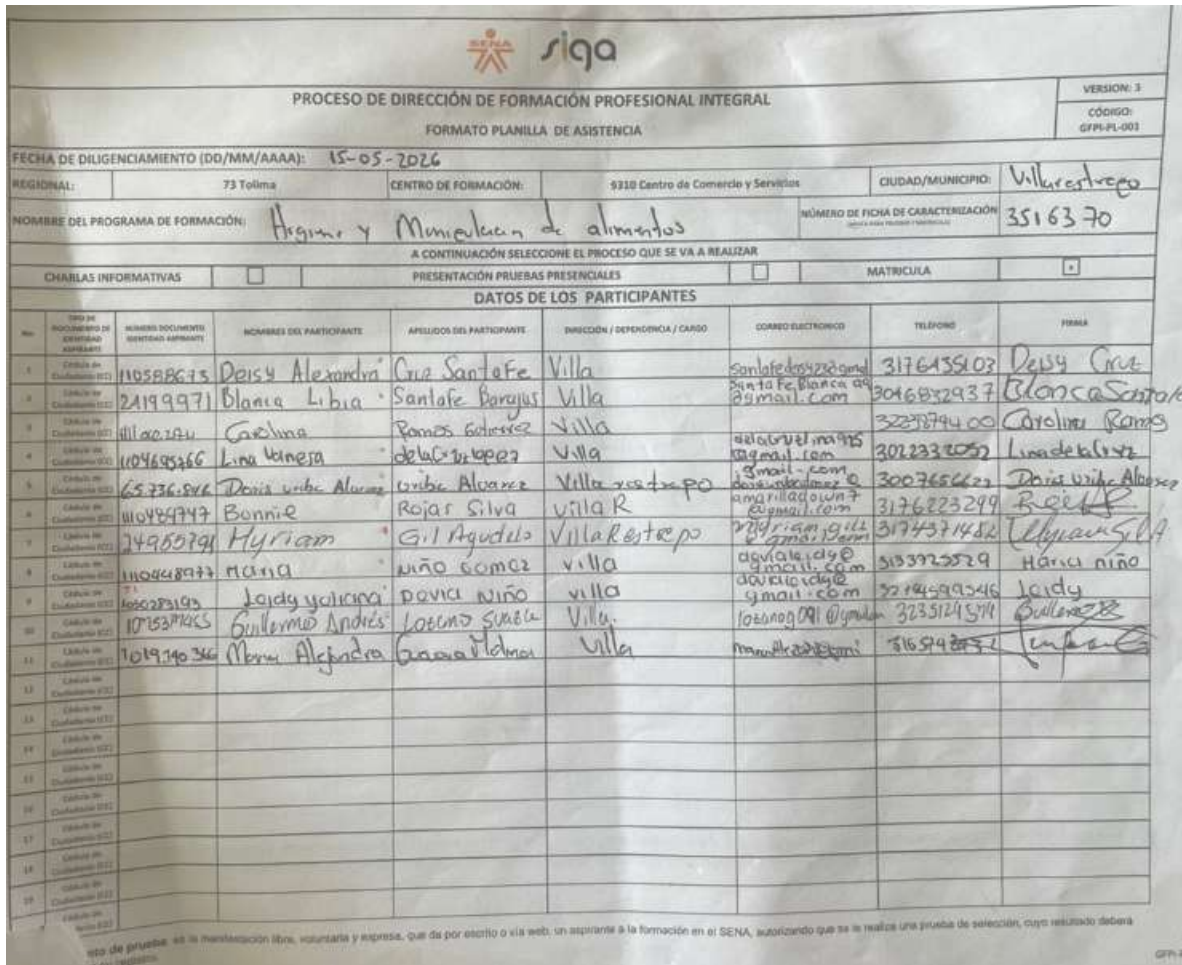 SENA siga
PROCESO DE DIRECCIÓN DE FORMACIÓN PROFESIONAL INTEGRAL
FORMATO PLANILLA DE ASISTENCIA
VERSION: 3
CÓDIGO:
GFPI-PL-003
FECHA DE DILIGENCIAMIENTO (DD/MM/AAAA): 15-05-2026
REGIONAL: 73 Tolima CENTRO DE FORMACIÓN: 9310 Centro de Comercio y Servicios CIUDAD/MUNICIPIO: Villarestrepo
NOMBRE DEL PROGRAMA DE FORMACIÓN: Higiene y Manipulacion de alimentos NÚMERO DE FICHA DE CARACTERIZACIÓN 3516370
A CONTINUACIÓN SELECCIONE EL PROCESO QUE SE VA A REALIZAR
CHARLAS INFORMATIVAS PRESENTACIÓN PRUEBAS PRESENCIALES MATRICULA
DATOS DE LOS PARTICIPANTES
TIPO DE DOCUMENTO DE IDENTIDAD ASPIRANTE NÚMERO DOCUMENTO IDENTIDAD ASPIRANTE NOMBRES DEL PARTICIPANTE APELLIDOS DEL PARTICIPANTE DIRECCIÓN / DEPENDENCIA / CARGO CORREO ELECTRONICO TELÉFONO FIRMA
1 Cédula de Ciudadanía (CC) 110588673 Deisy Alexandra Cruz SantaFe Villa 3176435103 Deisy Cruz
2 Cédula de Ciudadanía (CC) 24199971 Blanca Libia Santafe Barajas Villa 3046832937 Blanca Santafe
3 Cédula de Ciudadanía (CC) Carolina Ramos Gutierrez Villa Carolina Ramos
4 Cédula de Ciudadanía (CC) 1104695766 Lina Vanesa dela Cruz lopez Villa 3022332052 Lina de la Cruz
5 Cédula de Ciudadanía (CC) 65.736.846 Doris uribe Alvarez uribe Alvarez Villa restrepo 3007656622 Doris Uribe Alvarez
6 Cédula de Ciudadanía (CC) 1110489747 Bonnie Rojas Silva villa R amarilladown7@gmail.com 3176223299
7 Cédula de Ciudadanía (CC) 24955791 Myriam Gil Agudelo Villa Restrepo 3174371482
8 Cédula de Ciudadanía (CC) 1110448977 Maria niño Gomez villa davialeidy@gmail.com 3133925529 Maria niño
9 Cédula de Ciudadanía (CC) Leidy yuliana Davia Niño villa Leidy
10 Guillermo Andrés Lozano Villa. 3235124574
11 Cédula de Ciudadanía (CC) 1019140366 Maria Alejandra Villa
12 Cédula de Ciudadanía (CC)
13 Cédula de Ciudadanía (CC)
14 Cédula de Ciudadanía (CC)
15 Cédula de Ciudadanía (CC)
16 Cédula de Ciudadanía (CC)
17 Cédula de Ciudadanía (CC)
18 Cédula de Ciudadanía (CC)
19 Cédula de Ciudadanía (CC)
Cédula de
de prueba: es la manifestación libre, voluntaria y expresa, que da por escrito o vía web, un aspirante a la formación en el SENA, autorizando que se le realice una prueba de selección, cuyo resultado deberá